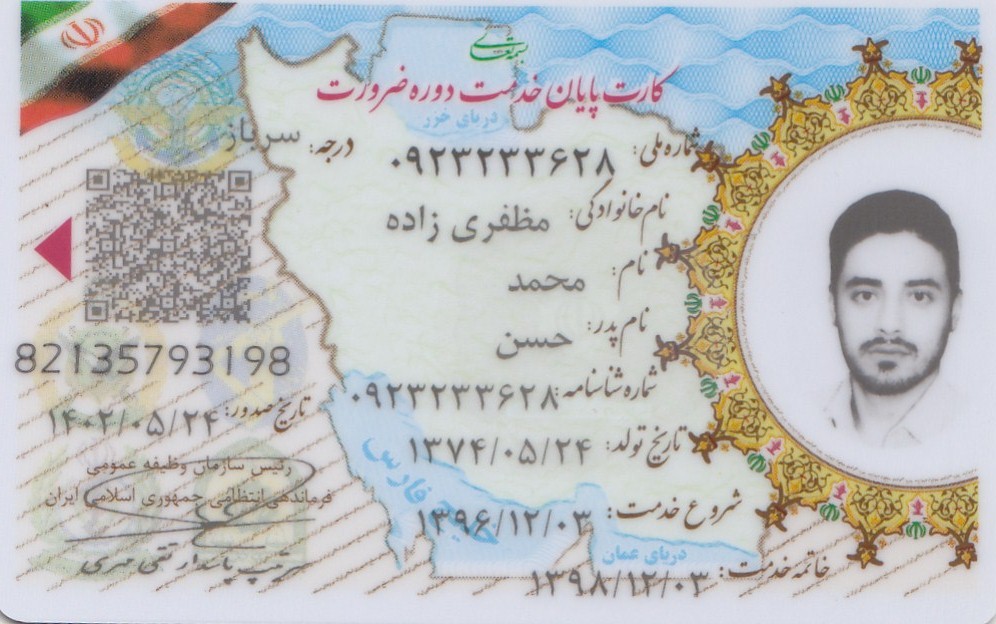 بسمه تعالی
کارت پایان خدمت دوره ضرورت
دریای خزر
شماره ملی: ۰۹۲۳۲۳۳۶۲۸
درجه: سرباز
نام خانوادگی: مظفری زاده
نام: محمد
نام پدر: حسن
شماره شناسنامه: ۰۹۲۳۲۳۳۶۲۸
تاریخ تولد: ۱۳۷۴/۰۵/۲۴
شروع خدمت: ۱۳۹۶/۱۲/۰۳
خاتمه خدمت: ۱۳۹۸/۱۲/۰۳
خلیج فارس
دریای عمان
82135793198
تاریخ صدور: ۱۴۰۲/۰۵/۲۴
رئیس سازمان وظیفه عمومی
فرماندهی انتظامی جمهوری اسلامی ایران
سرتیپ پاسدار تقی مهری